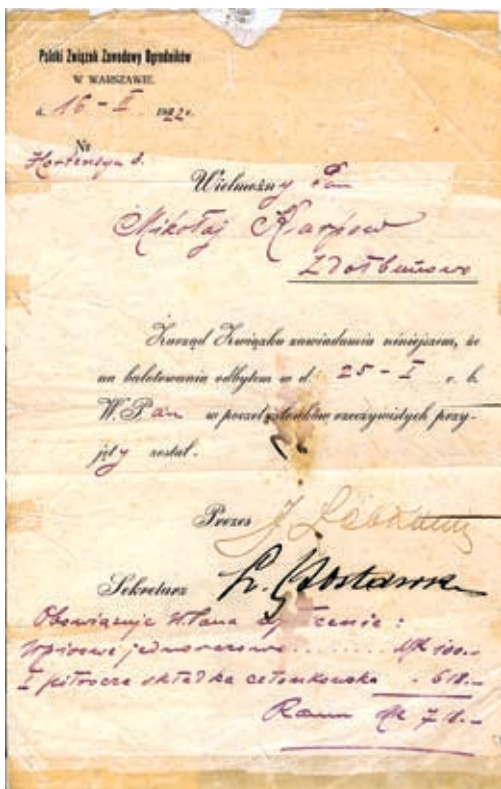 Polski Związek Zawodowy Ogrodników
W WARSZAWIE.
d. 16 - II 1922 r.
№
Hortensya 8.
Wielmożny Pan
Mikołaj Karpow
Zdołbunowo
Zarząd Związku zawiadamia niniejszem, że
na balotowaniu odbytem w d. 25 - I r. b.
W. Pan w poczet członków rzeczywistych przy-
jęty został.
Prezes
Sekretarz
Obowiązuje W Pana wpłacenie:
Wpisowe jednorazowo........ Mk 100.-
I półrocze składka członkowska . 618.-
Razem Mk 718.-